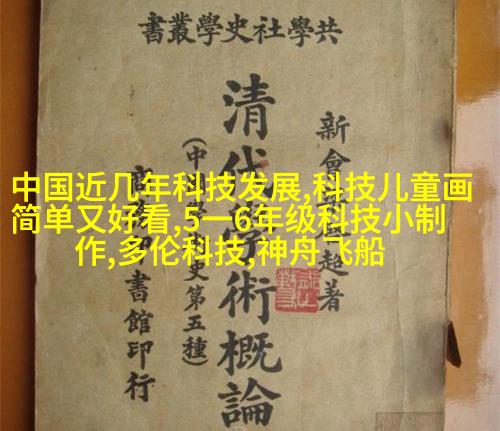 共學社史學叢書
中国近几年科技发展,科技儿童画
简单又好看,5一6年级科技小制
作,多伦科技,神舟飞船
新會
超著
清代
術概論
(中
史第五種)
書館印行